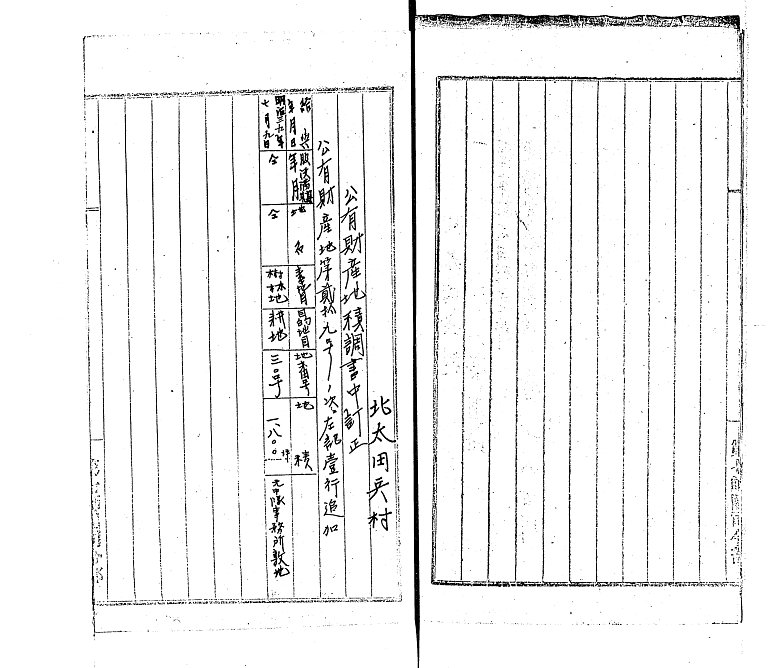 北太田兵村
公有財産地積調書中訂正
公有財産地第貳拾九号ノ次左記壹行追加
給與年月日
年月
地名
素質
目的地目
地番号
地積
明治三十年七月九日
仝
仝
樹林地
耕地
三〇号
一、八〇〇坪
元中隊事務所敷地